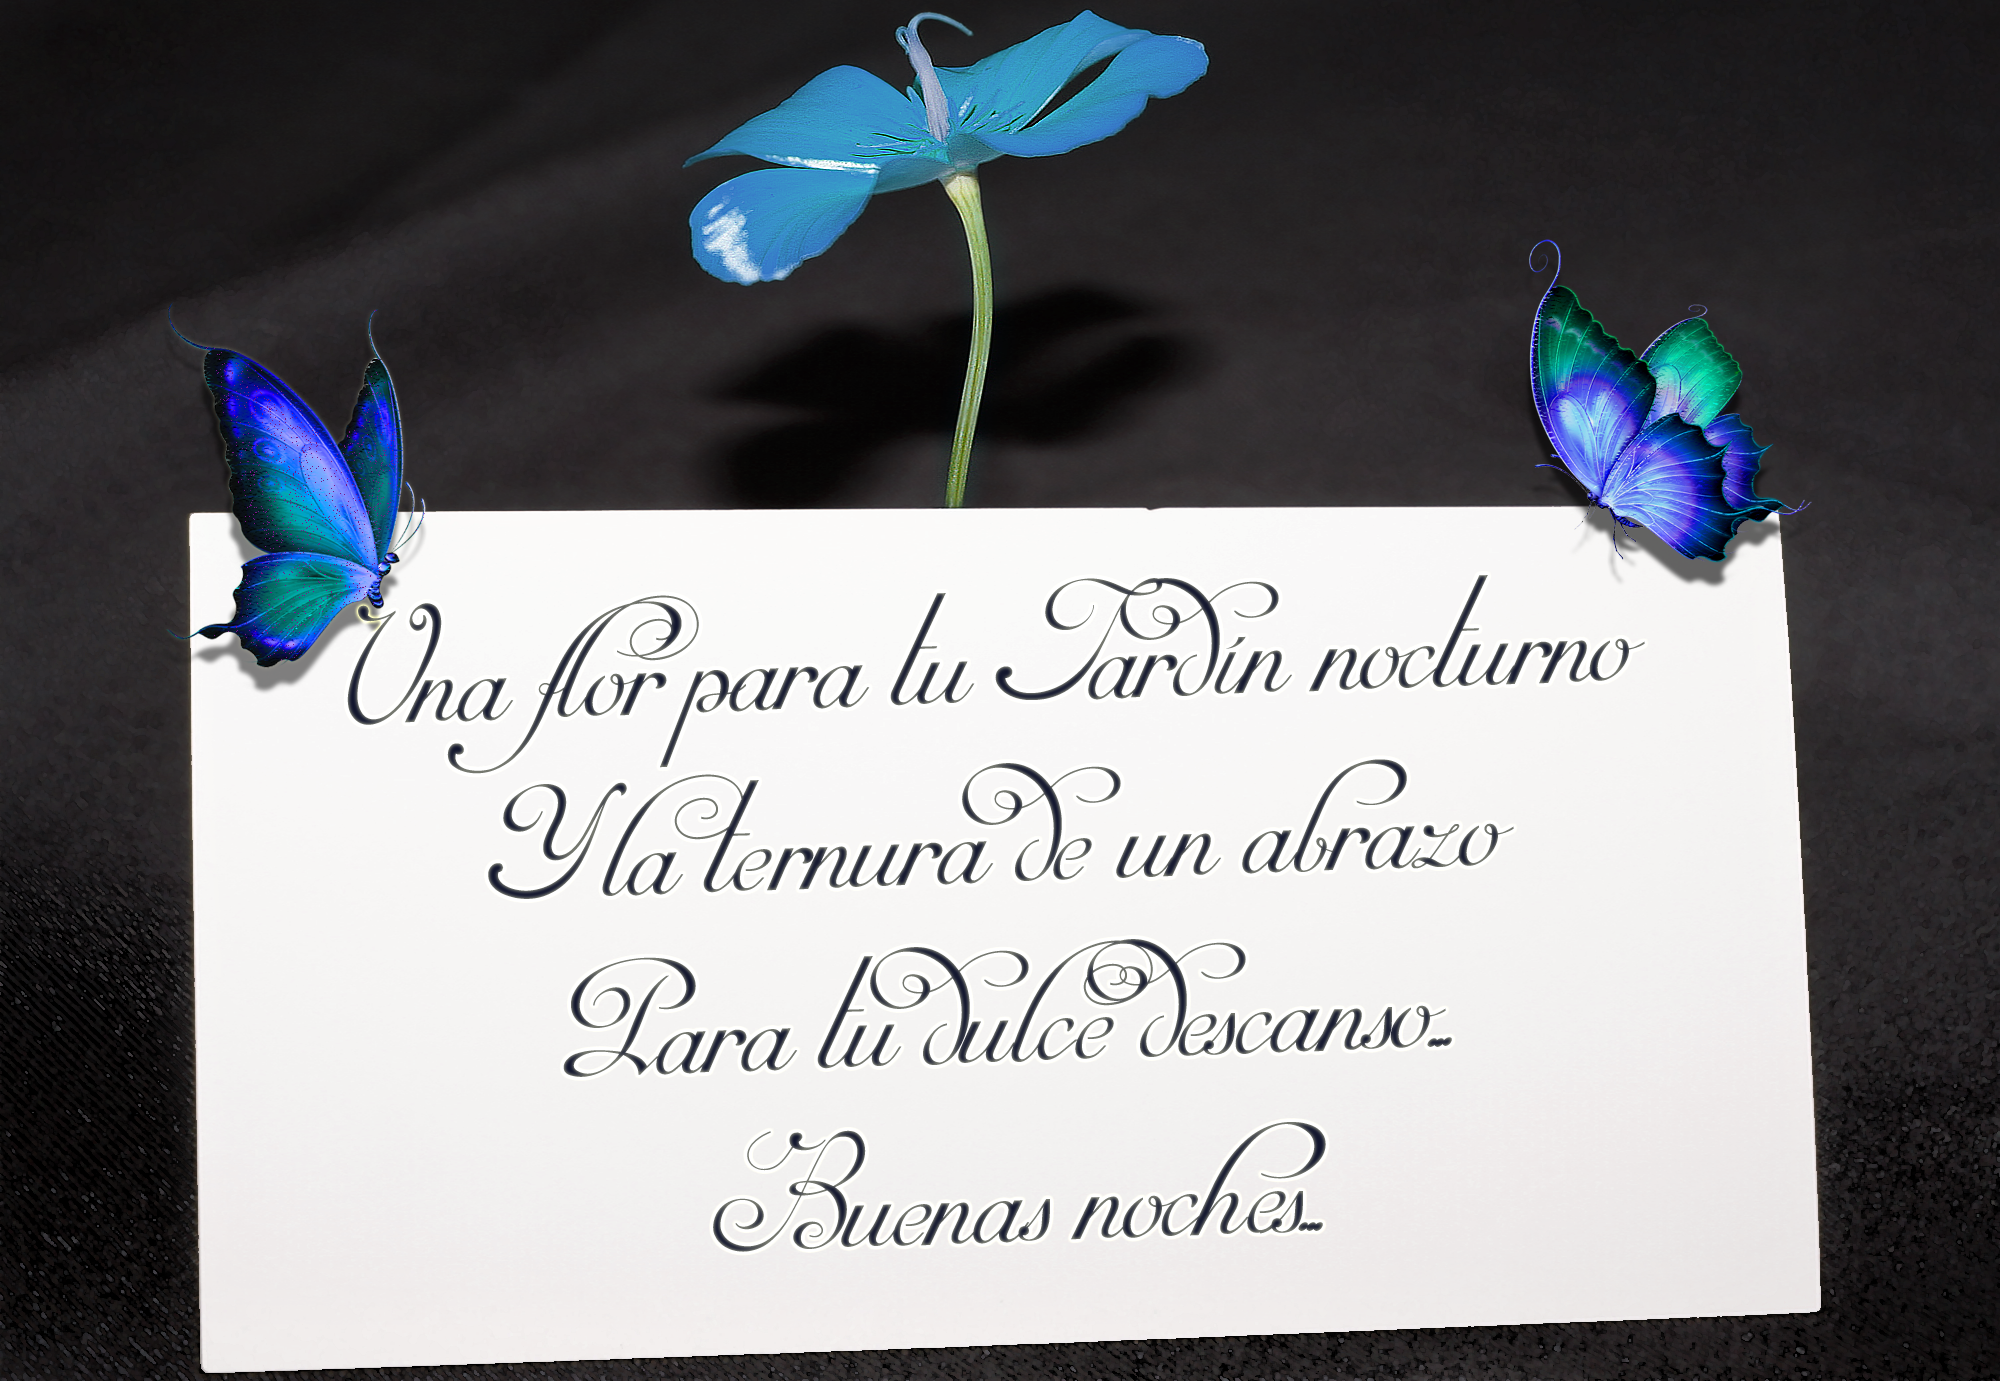 Una flor para tu Jardín nocturno
Y la ternura de un abrazo
Para tu dulce descanso...
Buenas noches...